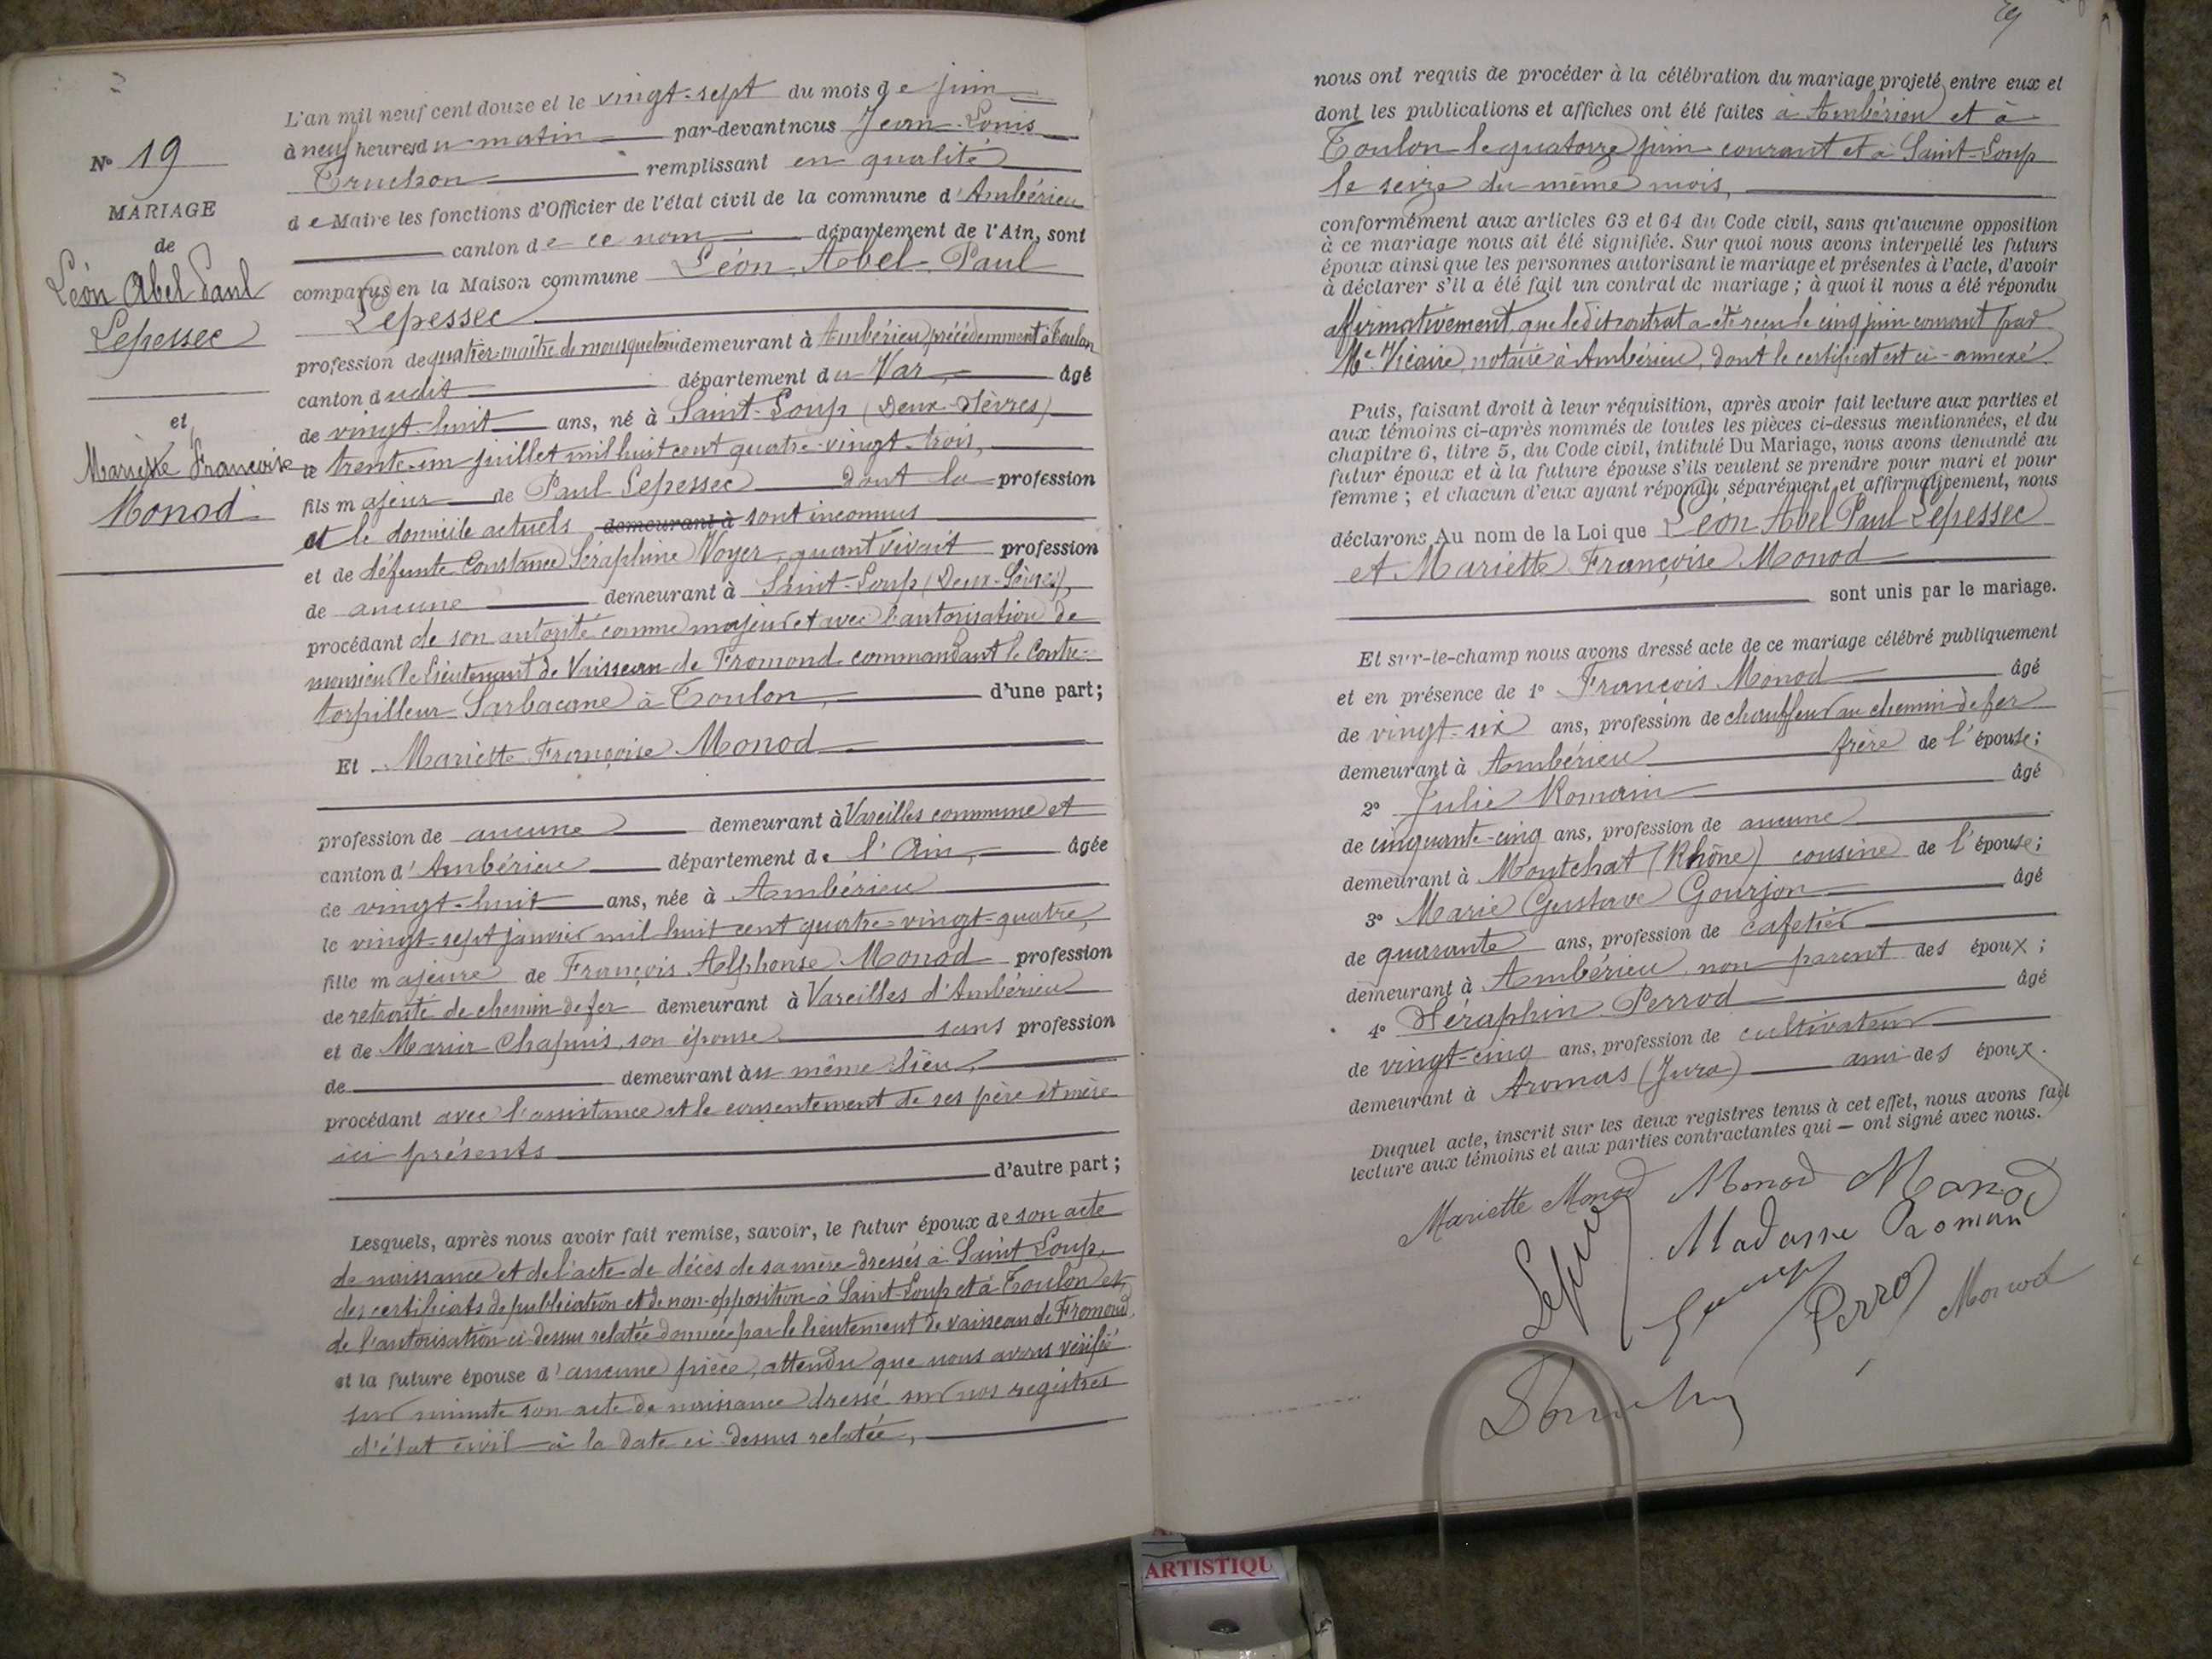 N° 19
MARIAGE
de
Léon Abel Paul
Lepessec
et
Mariette Françoise
Monod
L'an mil neuf cent douze et le vingt-sept du mois de juin
à neuf heures du matin par-devant nous Jean-Louis
Truchon remplissant en qualité
de Maire les fonctions d'Officier de l'état civil de la commune d'Ambérieu
canton de ce nom département de l'Ain, sont
comparus en la Maison commune Léon Abel Paul
Lepessec
profession de quartier-maître de mousqueterie demeurant à Ambérieu précédemment à Toulon
canton dudit département du Var, âgé
de vingt-huit ans, né à Saint-Loup (Deux-Sèvres)
le trente-un juillet mil huit cent quatre-vingt-trois,
fils majeur de Paul Lepessec dont la profession
et le domicile actuels demeurant à sont inconnus
et de défunte Constance Séraphine Voyer quant vivait profession
de aucune demeurant à Saint-Loup (Deux-Sèvres),
procédant de son autorité comme majeur et avec l'autorisation de
monsieur le Lieutenant de Vaisseau de Fromond commandant le Contre-
torpilleur Sarbacane à Toulon, d'une part;
Et Mariette Françoise Monod
profession de aucune demeurant à Vareilles commune et
canton d'Ambérieu département de l'Ain, âgée
de vingt-huit ans, née à Ambérieu
le vingt-sept janvier mil huit cent quatre-vingt-quatre,
fille majeure de François Alphonse Monod profession
de retraité de chemin de fer demeurant à Vareilles d'Ambérieu
et de Marie Chapuis, son épouse sans profession
de demeurant au même lieu,
procédant avec l'assistance et le consentement de ses père et mère
ici présents
d'autre part;
Lesquels, après nous avoir fait remise, savoir, le futur époux de son acte
de naissance et de l'acte de décès de sa mère dressés à Saint-Loup,
des certificats de publication et de non-opposition à Saint-Loup et à Toulon et
de l'autorisation ci-dessus relatée donnée par le lieutenant de vaisseau de Fromond,
et la future épouse d'aucune pièce, attendu que nous avons vérifié
sur minute son acte de naissance dressé sur nos registres
d'état civil à la date ci-dessus relatée,
nous ont requis de procéder à la célébration du mariage projeté entre eux et
dont les publications et affiches ont été faites à Ambérieu et à
Toulon le quatorze juin courant et à Saint-Loup
le seize du même mois,
conformément aux articles 63 et 64 du Code civil, sans qu'aucune opposition
à ce mariage nous ait été signifiée. Sur quoi nous avons interpellé les futurs
époux ainsi que les personnes autorisant le mariage et présentes à l'acte, d'avoir
à déclarer s'il a été fait un contrat de mariage; à quoi il nous a été répondu
affirmativement, que ledit contrat a été reçu le cinq juin courant par
Me Vicaire, notaire à Ambérieu, dont le certificat est ci-annexé
Puis, faisant droit à leur réquisition, après avoir fait lecture aux parties et
aux témoins ci-après nommés de toutes les pièces ci-dessus mentionnées, et du
chapitre 6, titre 5, du Code civil, intitulé Du Mariage, nous avons demandé au
futur époux et à la future épouse s'ils veulent se prendre pour mari et pour
femme; et chacun d'eux ayant répondu séparément et affirmativement, nous
déclarons Au nom de la Loi que Léon Abel Paul Lepessec
et Mariette Françoise Monod
sont unis par le mariage.
Et sur-le-champ nous avons dressé acte de ce mariage célébré publiquement
et en présence de 1° François Monod âgé
de vingt-six ans, profession de chauffeur au chemin de fer
demeurant à Ambérieu frère de l'épouse;
2° Julie Romain âgé
de cinquante-cinq ans, profession de aucune
demeurant à Montchat (Rhône) cousine de l'épouse;
3° Marie Gustave Gourjon âgé
de quarante ans, profession de cafetier
demeurant à Ambérieu non parent des époux;
4° Séraphin Perrod âgé
de vingt-cinq ans, profession de cultivateur
demeurant à Aromas (Jura) ami des époux.
Duquel acte, inscrit sur les deux registres tenus à cet effet, nous avons fait
lecture aux témoins et aux parties contractantes qui — ont signé avec nous.
Mariette Monod Monod Monod
Madame Romain
Perrod Monod
ARTISTIQU